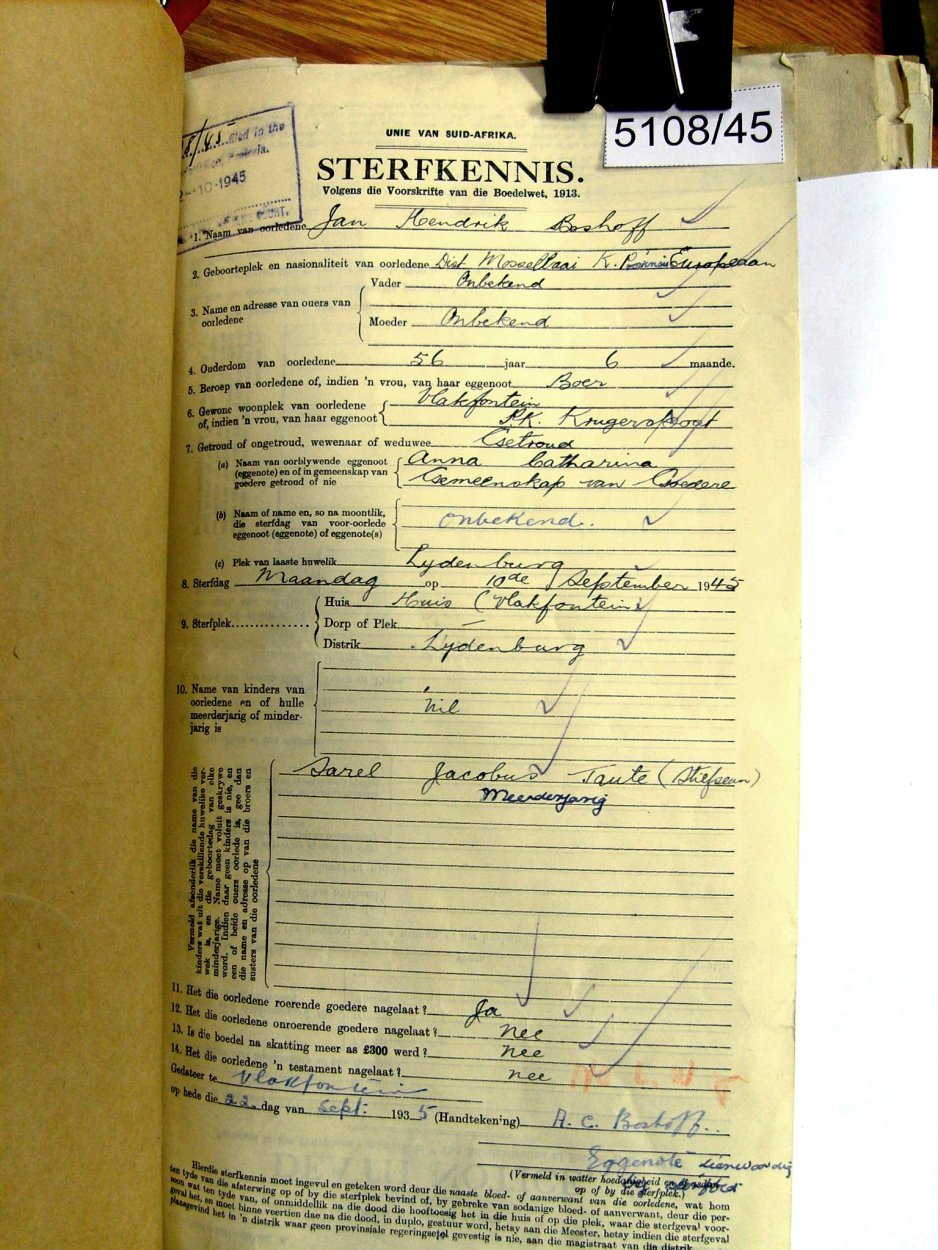 5108/45
8/45
filed in the
Pretoria.
2-10-1945
COURT.
UNIE VAN SUID-AFRIKA.
STERFKENNIS.
Volgens die Voorskrifte van die Boedelwet, 1913.
1. Naam van oorledene Jan Hendrik Boshoff
2. Geboorteplek en nasionaliteit van oorledene Dist Mosselbaai K. Provinsie Europeaan
3. Name en adresse van ouers van oorledene
Vader Onbekend
Moeder Onbekend
4. Ouderdom van oorledene 56 jaar 6 maande.
5. Beroep van oorledene of, indien 'n vrou, van haar eggenoot Boer
6. Gewone woonplek van oorledene of, indien 'n vrou, van haar eggenoot
Vlakfontein
P.K. Krugerspost
7. Getroud of ongetroud, wewenaar of weduwee Getroud
(a) Naam van oorblywende eggenoot (eggenote) en of in gemeenskap van goedere getroud of nie
Anna Catharina
Gemeenskap van Goedere
(b) Naam of name en, so na moontlik, die sterfdag van voor-oorlede eggenoot (eggenote) of eggenote(s)
Onbekend.
(c) Plek van laaste huwelik Lydenburg
8. Sterfdag Maandag op 10de September 1945
9. Sterfplek
Huis Huis (Vlakfontein)
Dorp of Plek –
Distrik Lydenburg
10. Name van kinders van oorledene en of hulle meerderjarig of minderjarig is
nil
Vermeld afsonderlik die name van die
kinders wat uit die verskillende huwelike verwek is, en die geboortedag van elke
minderjarige. Name moet voluit geskrywe
word. Indien daar geen kinders is nie, en
een of beide ouers oorlede is, gee dan
die name en adresse op van die broers en
susters van die oorledene
Sarel Jacobus Taute (Stiefseun)
Meerderjarig
11. Het die oorledene roerende goedere nagelaat? Ja
12. Het die oorledene onroerende goedere nagelaat? nee
13. Is die boedel na skatting meer as £300 werd? nee
14. Het die oorledene 'n testament nagelaat? nee
Gedateer te Vlakfontein
op hede die 22 dag van Sept: 1935 (Handtekening) A. C. Boshoff.
Eggenote teenwoordig
(Vermeld in watter hoedanigheid en
op of by die sterfplek.)
Hierdie sterfkennis moet ingevul en geteken word deur die naaste bloed- of aanverwant van die oorledene, wat hom
ten tyde van die afsterwing op of by die sterfplek bevind of, by gebreke van sodanige bloed- of aanverwant, deur die persoon wat ten tyde van, of onmiddellik na die dood die hooftoesig het in die huis of op die plek, waar die sterfgeval voorgeval het, en moet binne veertien dae na die dood, in duplo, gestuur word, hetsy aan die Meester, hetsy indien die sterfgeval
plaasgevind het in 'n distrik waar geen provinsiale regeringsetel gevestig is nie, aan die magistraat van die distrik.